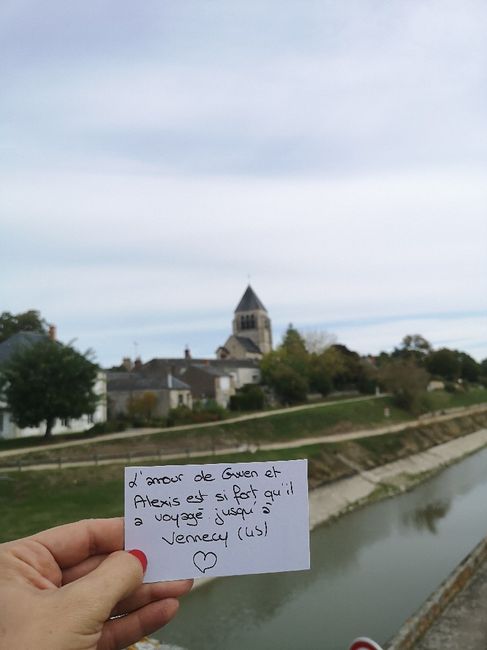 L'amour de Gwen et
Alexis est si fort qu'il
a voyagé jusqu'à
Vennecy (45)